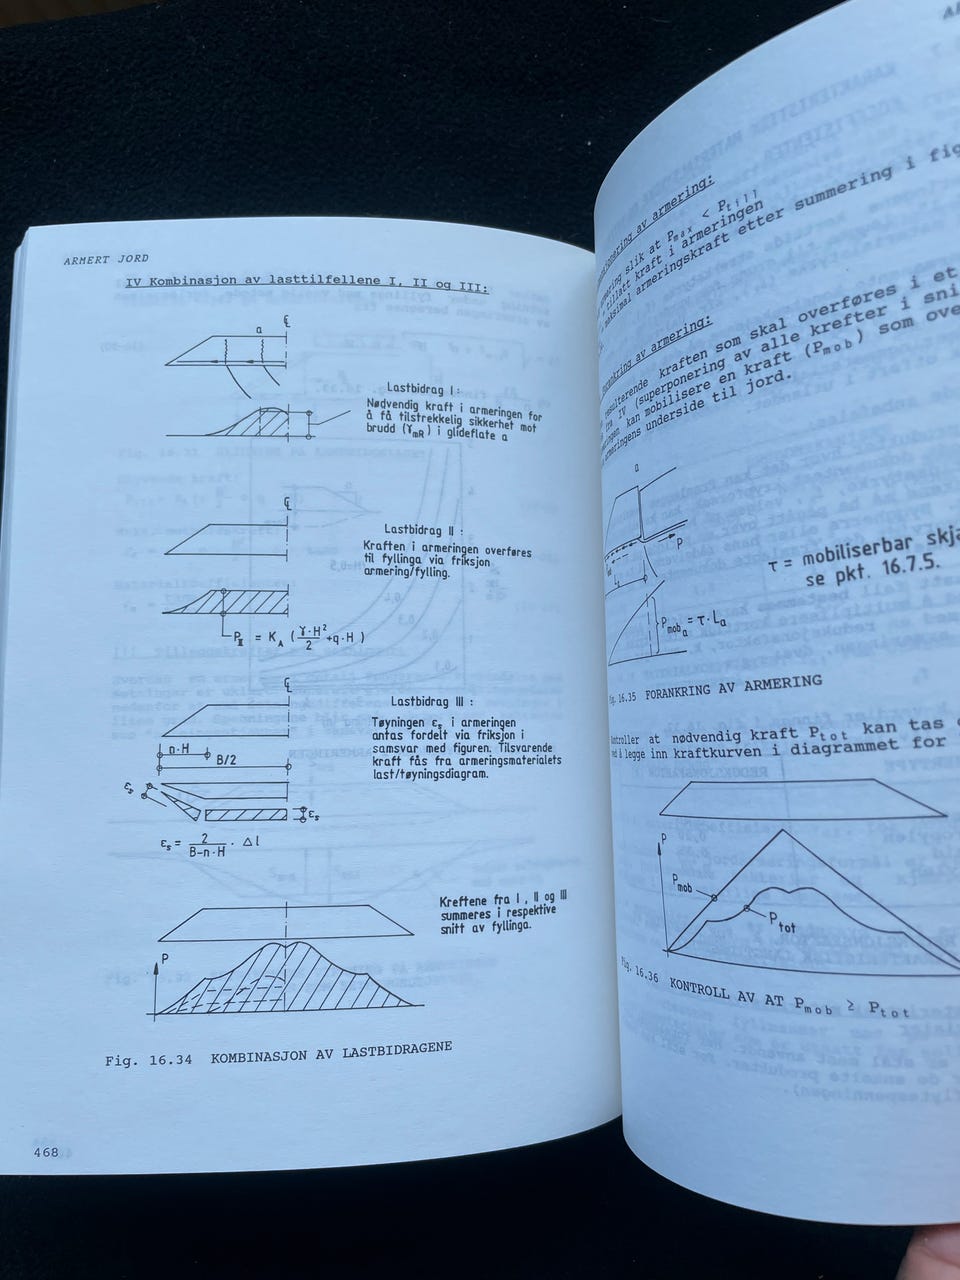 ARMERT JORD
IV Kombinasjon av lasttilfellene I, II og III:
℄
a
Lastbidrag I :
Nødvendig kraft i armeringen for
å få tilstrekkelig sikkerhet mot
brudd (γmR) i glideflate a
℄
Lastbidrag II :
Kraften i armeringen overføres
til fyllinga via friksjon
armering/fylling.
PII = KA (γ·H²/2 +q·H)
℄
Lastbidrag III :
Tøyningen εs i armeringen
antas fordelt via friksjon i
samsvar med figuren. Tilsvarende
kraft fås fra armeringsmaterialets
last/tøyningsdiagram.
n·H
B/2
εs
εs
εs = 2/B-n·H · Δl
Kreftene fra I, II og III
summeres i respektive
snitt av fyllinga.
P
Fig. 16.34 KOMBINASJON AV LASTBIDRAGENE
468
av armering:
armering slik at Pmax < Ptill
tillatt kraft i armeringen
maksimal armeringskraft etter summering i fig
av armering:
resulterende kraften som skal overføres i et
fra IV (superponering av alle krefter i sni
kan mobilisere en kraft (Pmob) som ove
armeringens underside til jord.
a
P
La
Pmob a = τ·La
τ = mobiliserbar skjæ
se pkt. 16.7.5.
16.35 FORANKRING AV ARMERING
at nødvendig kraft Ptot kan tas
ved å legge inn kraftkurven i diagrammet for
P
Pmob
Ptot
16.36 KONTROLL AV AT Pmob ≥ Ptot